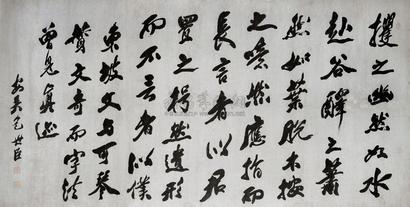 攫之幽然如水
赴谷醳之蕭
然如葉脱木按
之噫然應指而
長言者似君
置之枵然遺形
而不言者似僕
東坡文與可琴
贊文奇而字
曾見真迹
安吳包世臣